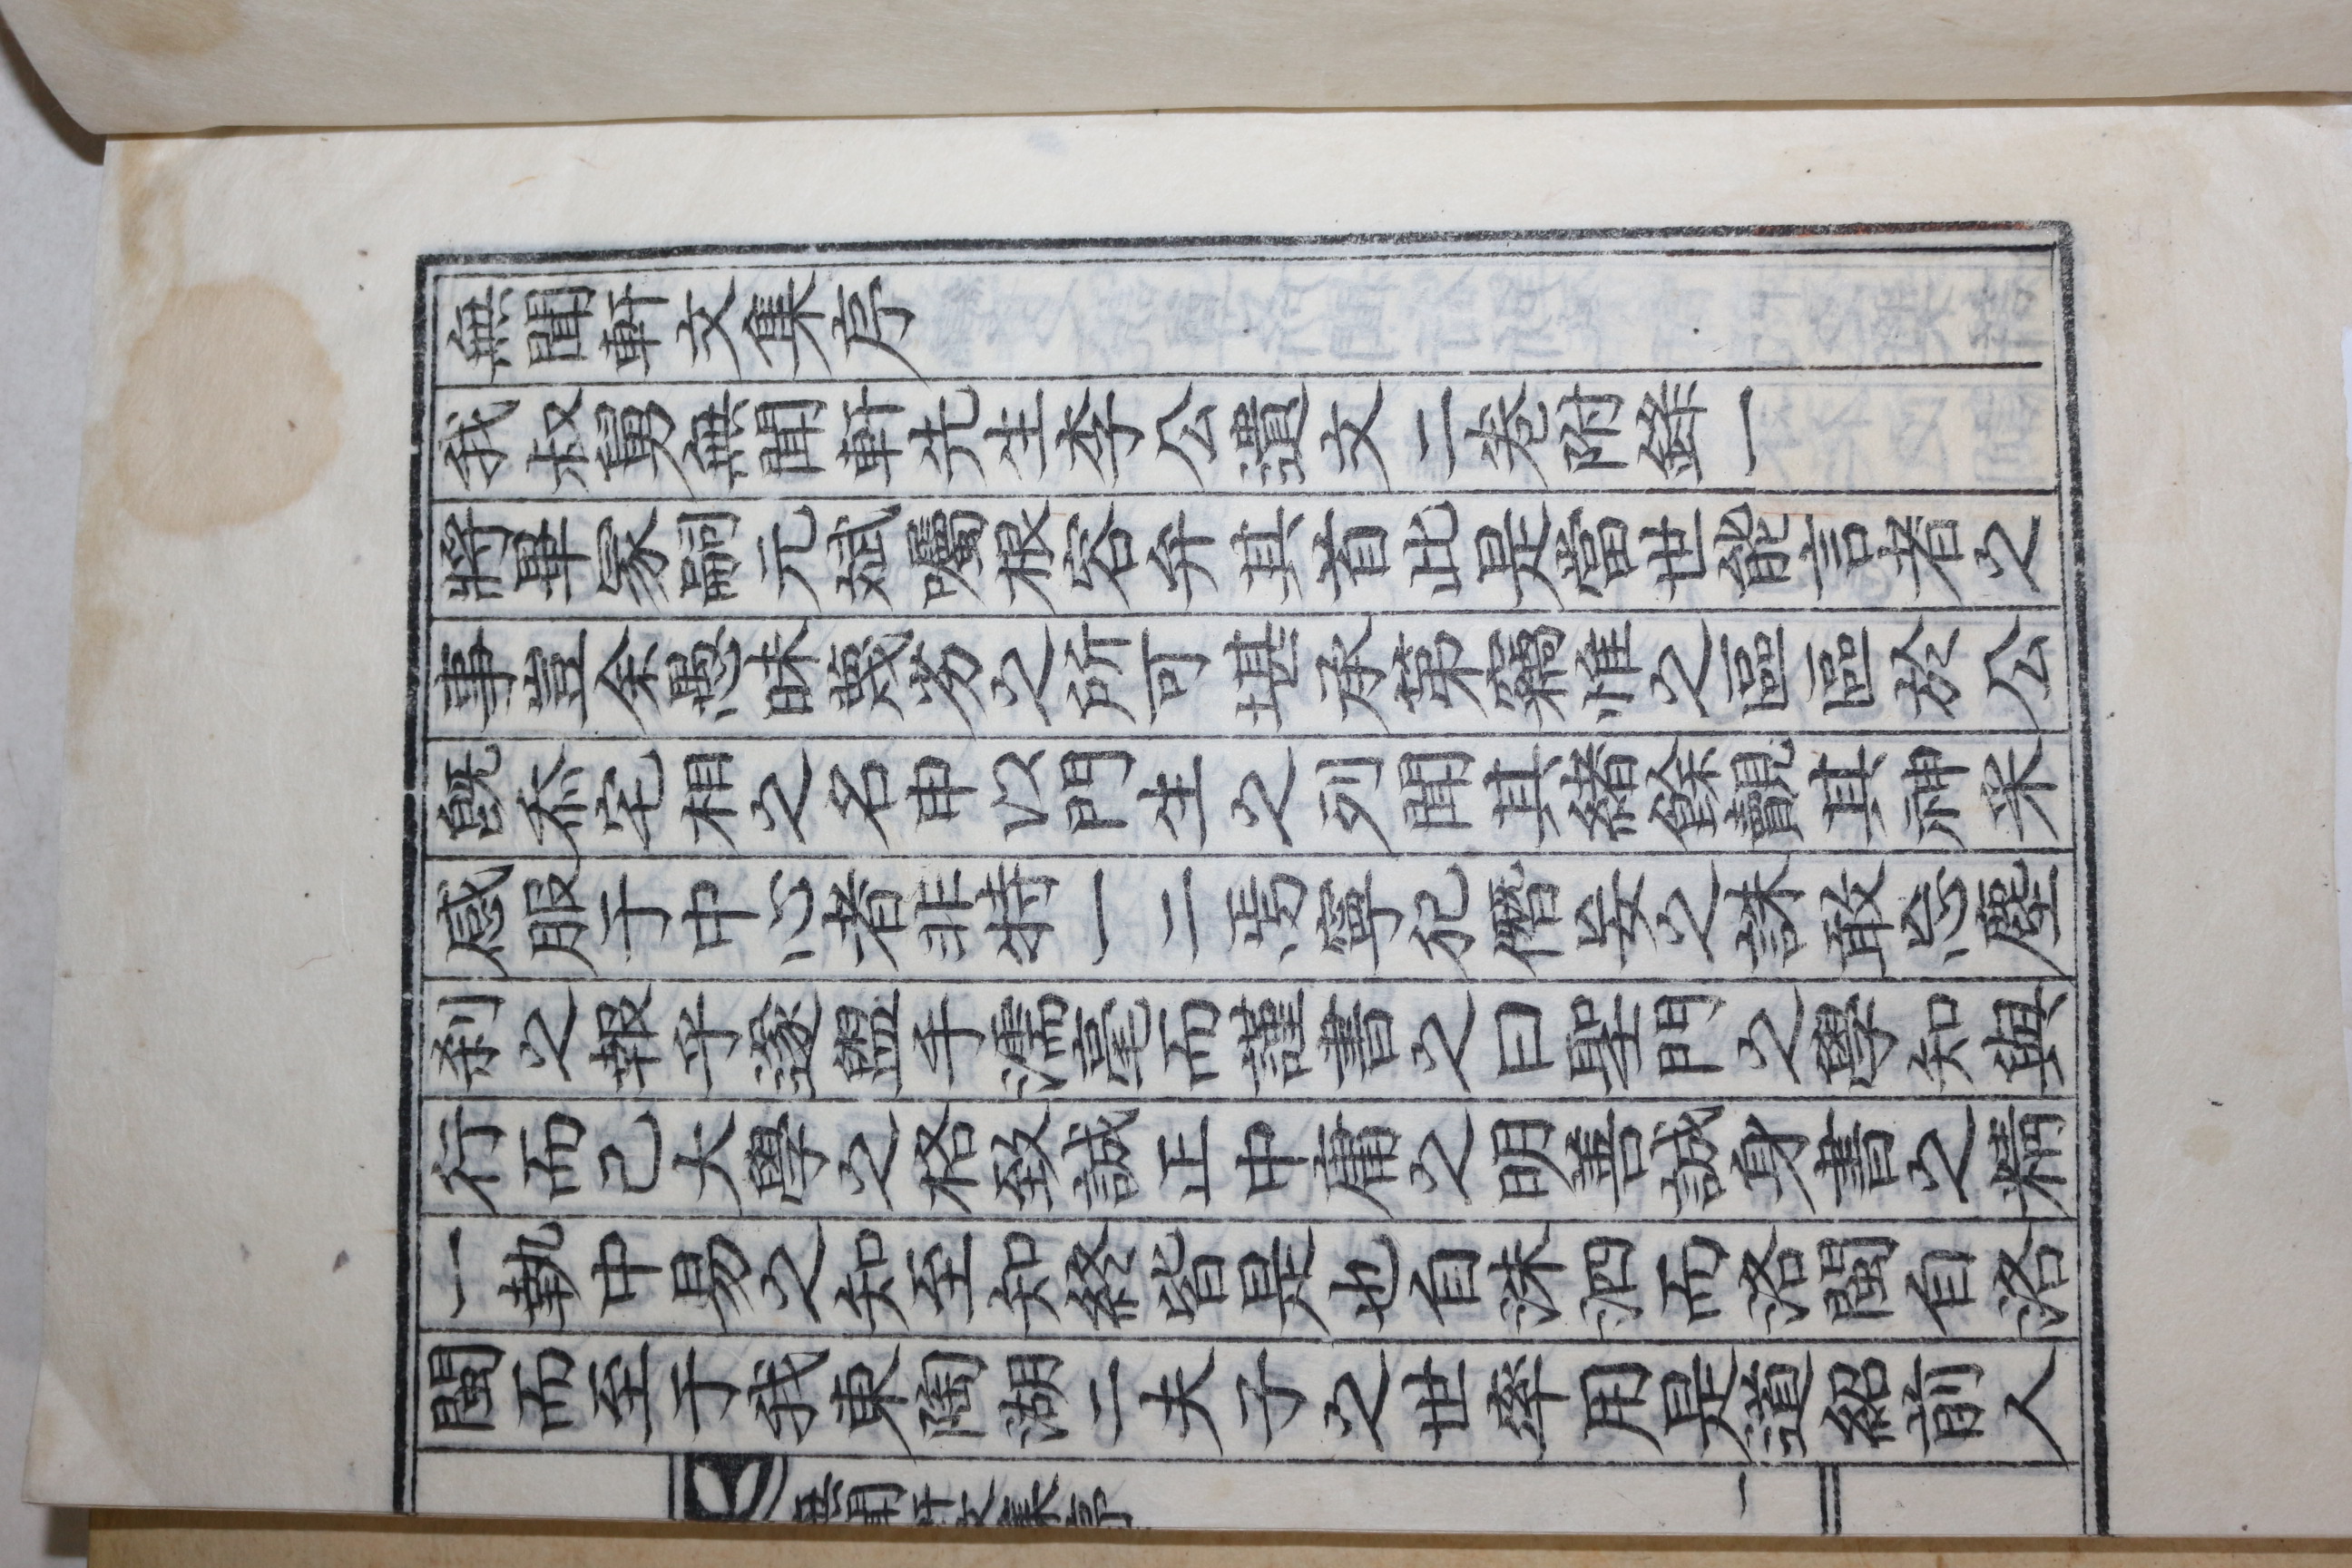 無聞軒文集序
我叔舅無聞軒先生李公遺文二卷附錄一
將畢家嗣元斌囑根容弁其首此是當世能言者之
事豈余愚昧蔑劣之所可堪承第竊惟之區區於公
旣忝宅相之名申以門生之列聞其緖餘覿其神采
感服于中心者非特一二焉寧犯僭妄之誅敢忘塵
刹之報乎遂盥手濡毫而謹書之曰聖門之學知與
行而已大學之格致誠正中庸之明善誠身書之精
一執中易之知至知終皆是也自洙泗而洛閩自洛
閩而至于我東陶湖二夫子之世率用是道紹前人
無聞軒文集序 一